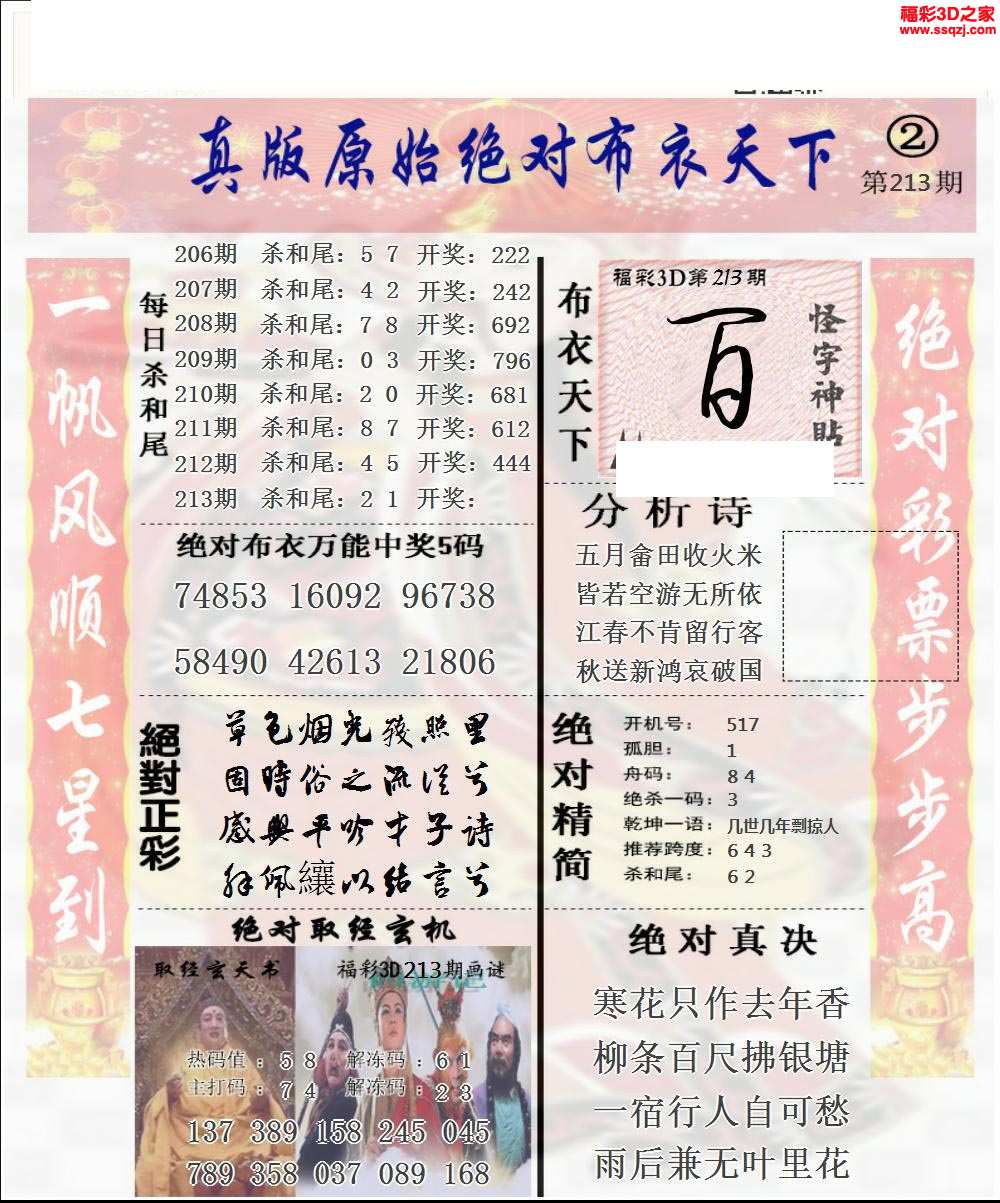 福彩3D之家
www.ssqzj.com
真版原始绝对布衣天下
②
第213期
一帆风顺七星到
每日杀和尾
206期 杀和尾：5 7 开奖：222
207期 杀和尾：4 2 开奖：242
208期 杀和尾：7 8 开奖：692
209期 杀和尾：0 3 开奖：796
210期 杀和尾：2 0 开奖：681
211期 杀和尾：8 7 开奖：612
212期 杀和尾：4 5 开奖：444
213期 杀和尾：2 1 开奖：
绝对布衣万能中奖5码
74853 16092 96738
58490 42613 21806
絕對正彩
草色烟光残照里
固時俗之流从兮
感兴平吟才子诗
解佩纕以结言兮
绝对取经玄机
取经玄天书
福彩3D213期画谜
热码值：5 8 解冻码：6 1
主打码：7 4 解冻码：2 3
137 389 158 245 045
789 358 037 089 168
布衣天下
福彩3D第213期
百
怪字神贴
分析诗
五月畲田收火米
皆若空游无所依
江春不肯留行客
秋送新鸿哀破国
绝对精简
开机号： 517
孤胆： 1
舟码： 8 4
绝杀一码：3
乾坤一语：几世几年剽掠人
推荐跨度：6 4 3
杀和尾： 6 2
绝对真决
寒花只作去年香
柳条百尺拂银塘
一宿行人自可愁
雨后兼无叶里花
绝对彩票步步高